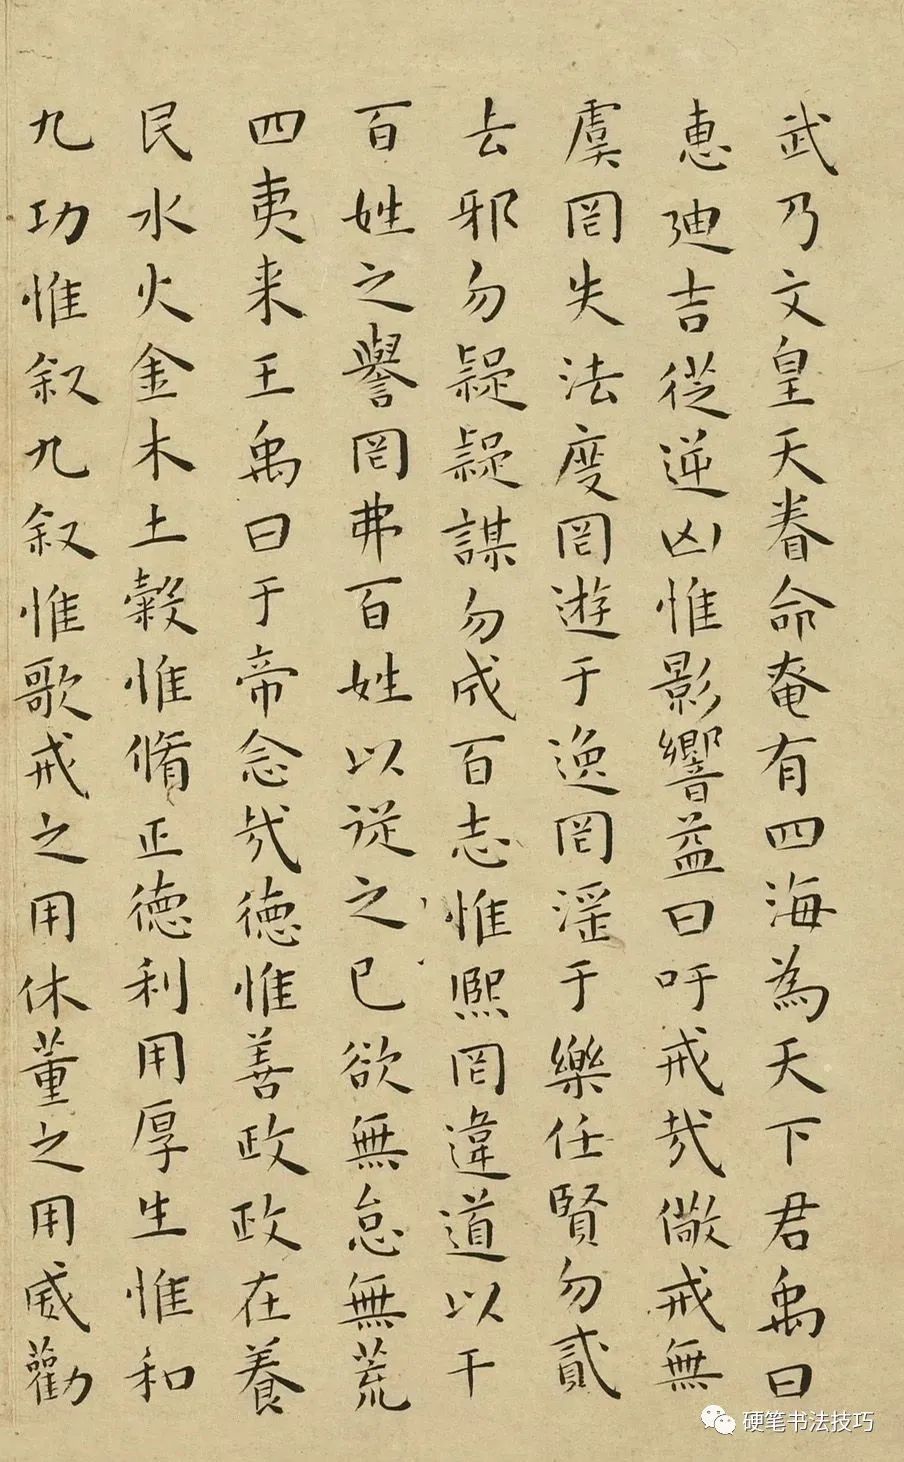 武乃文皇天眷命奄有四海為天下君禹曰
惠迪吉從逆凶惟影響益曰吁戒哉儆戒無
虞罔失法度罔遊于逸罔淫于樂任賢勿貳
去邪勿疑疑謀勿成百志惟熙罔違道以干
百姓之譽罔弗百姓以従之己欲無怠無荒
四夷来王禹曰于帝念哉德惟善政政在養
民水火金木土穀惟脩正德利用厚生惟和
九功惟叙九叙惟歌戒之用休董之用威勸
硬笔书法技巧